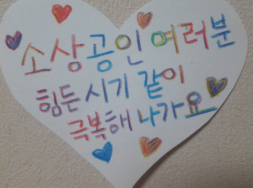 소상공인 여러분
힘든 시기 같이
극복해 나가요